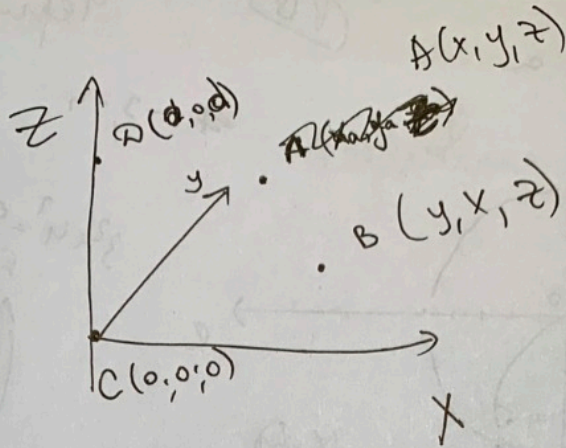 A(x,y,z)
Z
D(d,0,d)
y
B(y,x,z)
C(0;0;0)
X